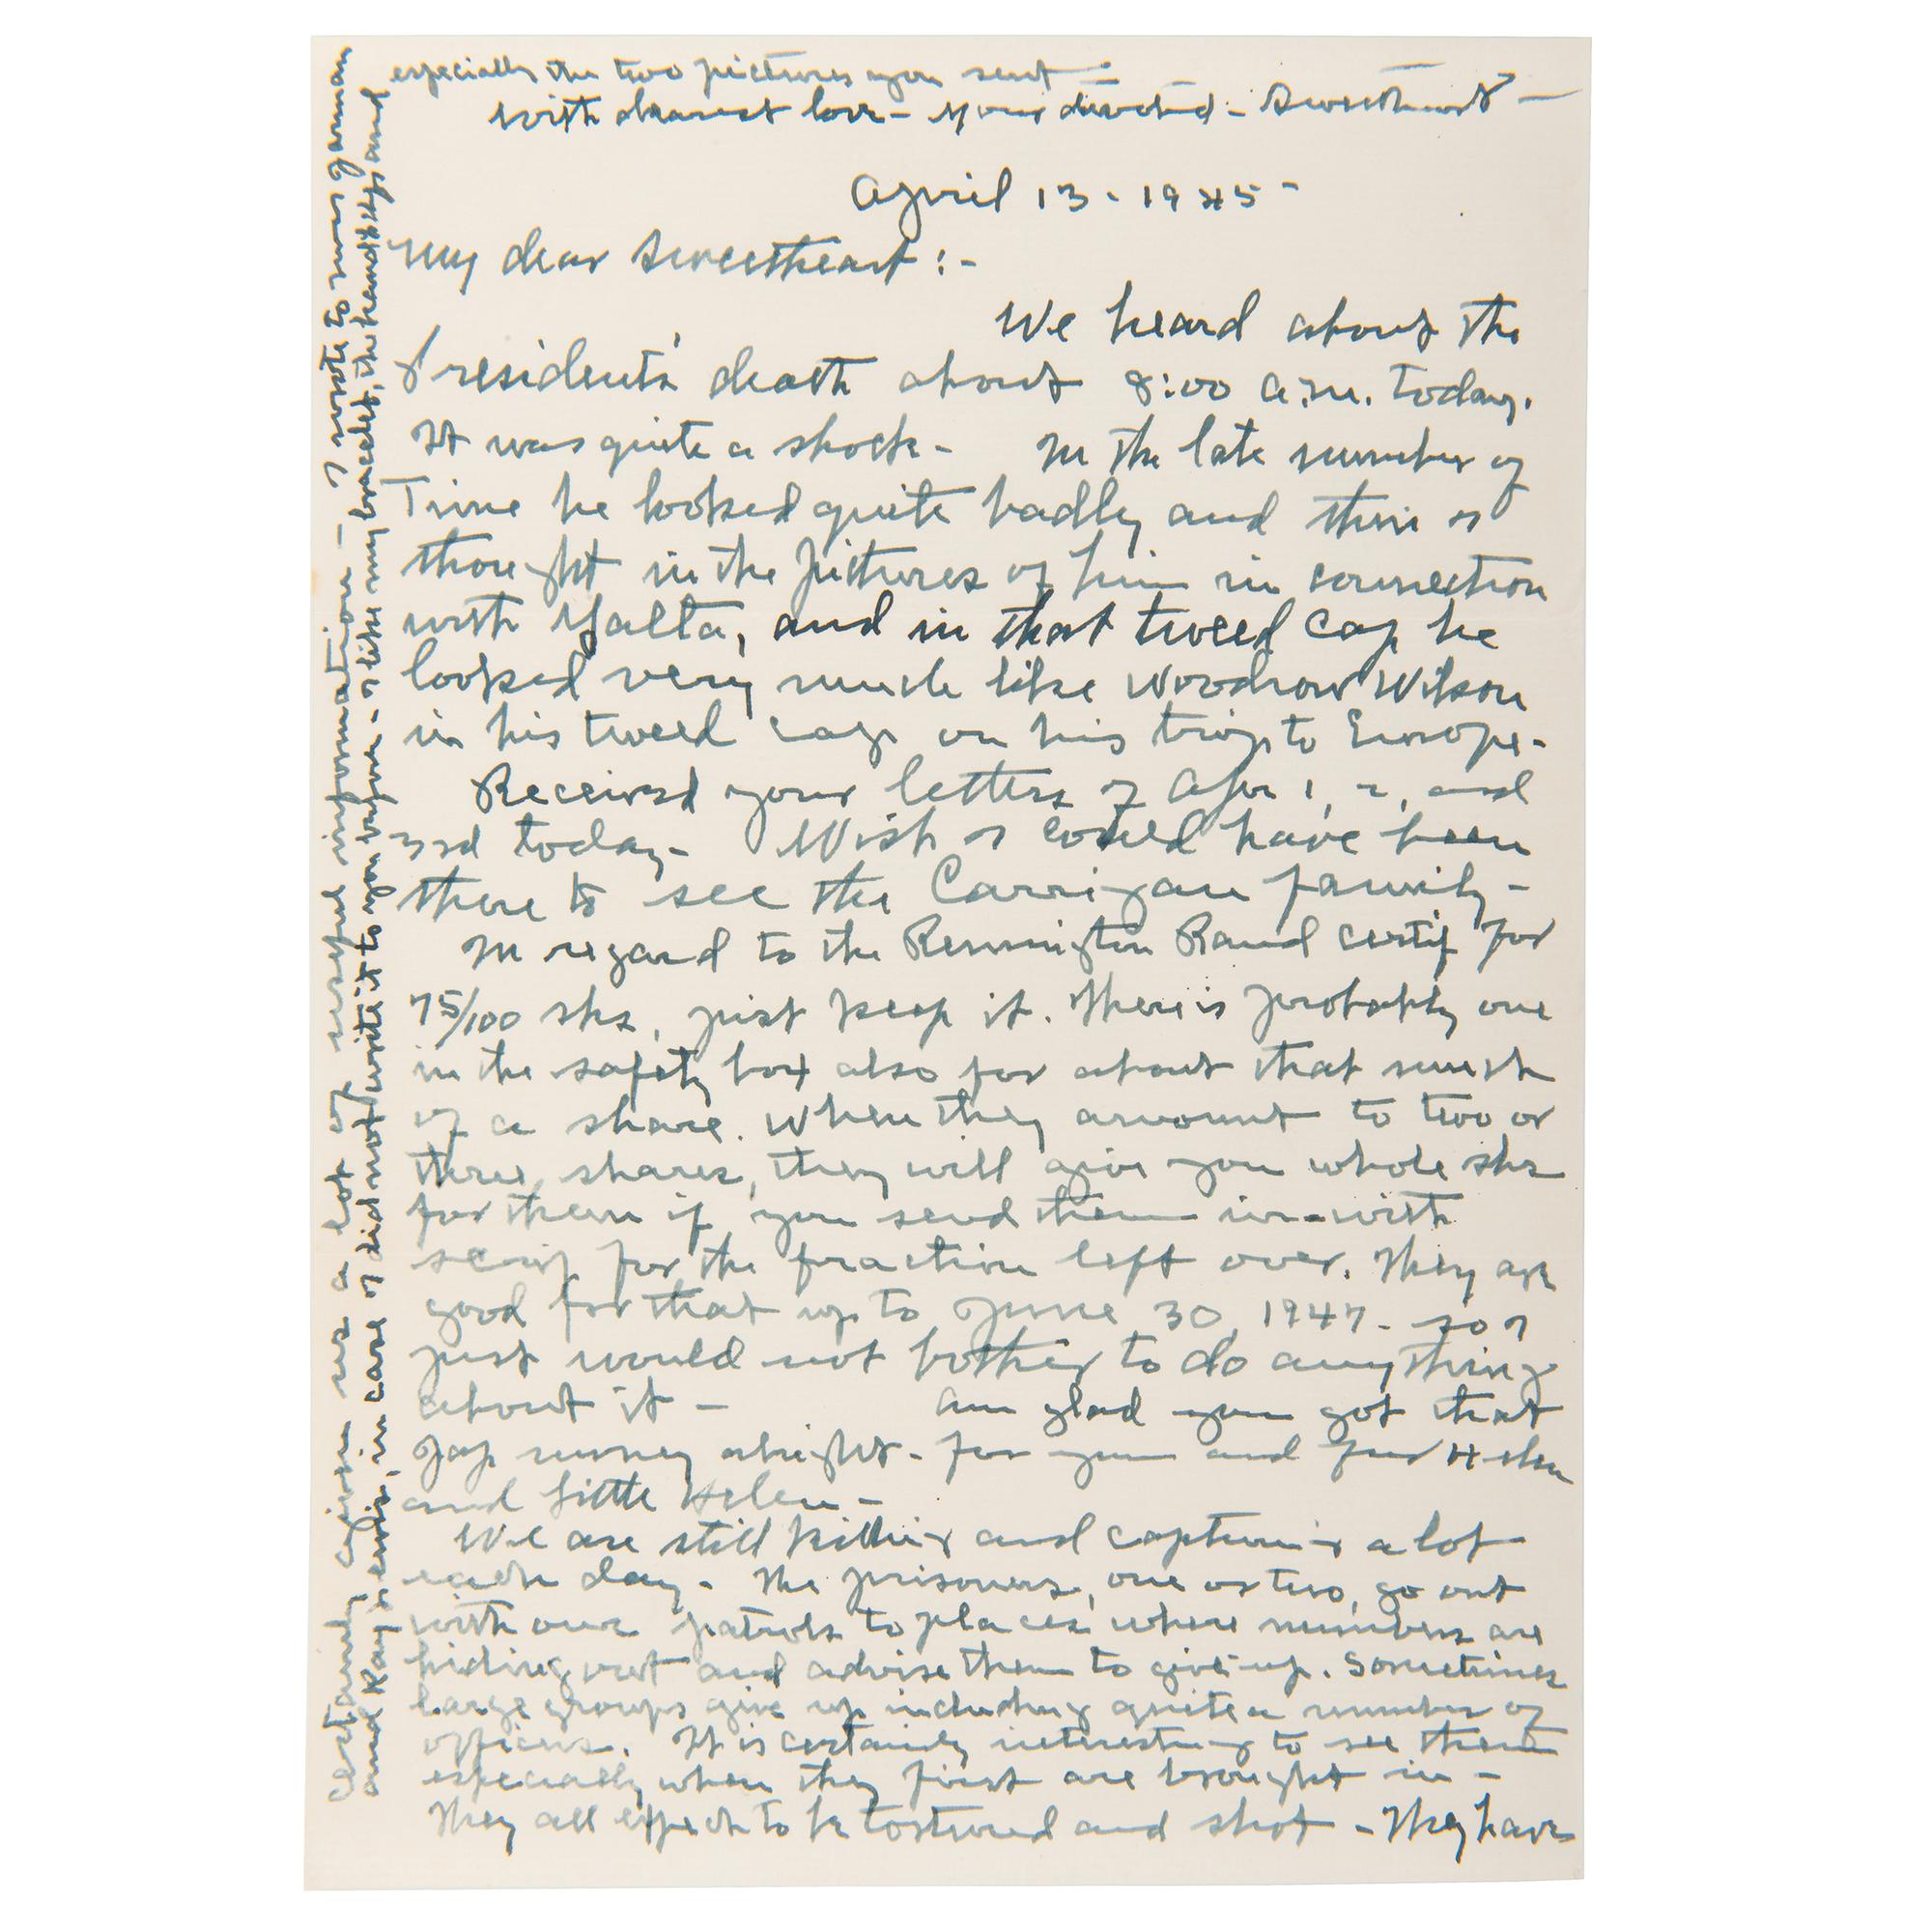 April 13 - 1945 -
My dear Sweetheart :-
We heard about the
President's death about 8:00 a.m. today.
It was quite a shock - In the late number of
Time he looked quite badly and then I
thought in the pictures of him in connection
with Yalta, and in that tweed cap he
looked very much like Woodrow Wilson
in his tweed cap on his trip to Europe -
Received your letters of Apr 1, 2, and
3rd today - Wish I could have been
there to see the Carrigan family -
In regard to the Remington Rand certif for
75/100 shs, just keep it. There is probably one
in the safety box also for about that much
of a share. When they amount to two or
three shares, they will give you whole shs
for them if you send them in - with
scrip for the fraction left over. They are
good for that up to June 30, 1947 - so I
just would not bother to do anything
about it - Am glad you got that
Jap money alright - for you and for Helen
and little Helen -
We are still killing and capturing a lot
each day - The prisoners, one or two, go out
with our patrols to places where numbers are
hiding out and advise them to give up. Sometimes
large groups give up including quite a number of
officers. It is certainly interesting to see them
especially when they first are brought in -
They all expect to be tortured and shot - They have
certainly given us a lot of useful information - I wrote to
and Kay Jervis, in case I did not write it to you before - I like my bracelet, the handkfs, and
especially the two pictures you sent -
With dearest love - Your devoted - Sweetheart -